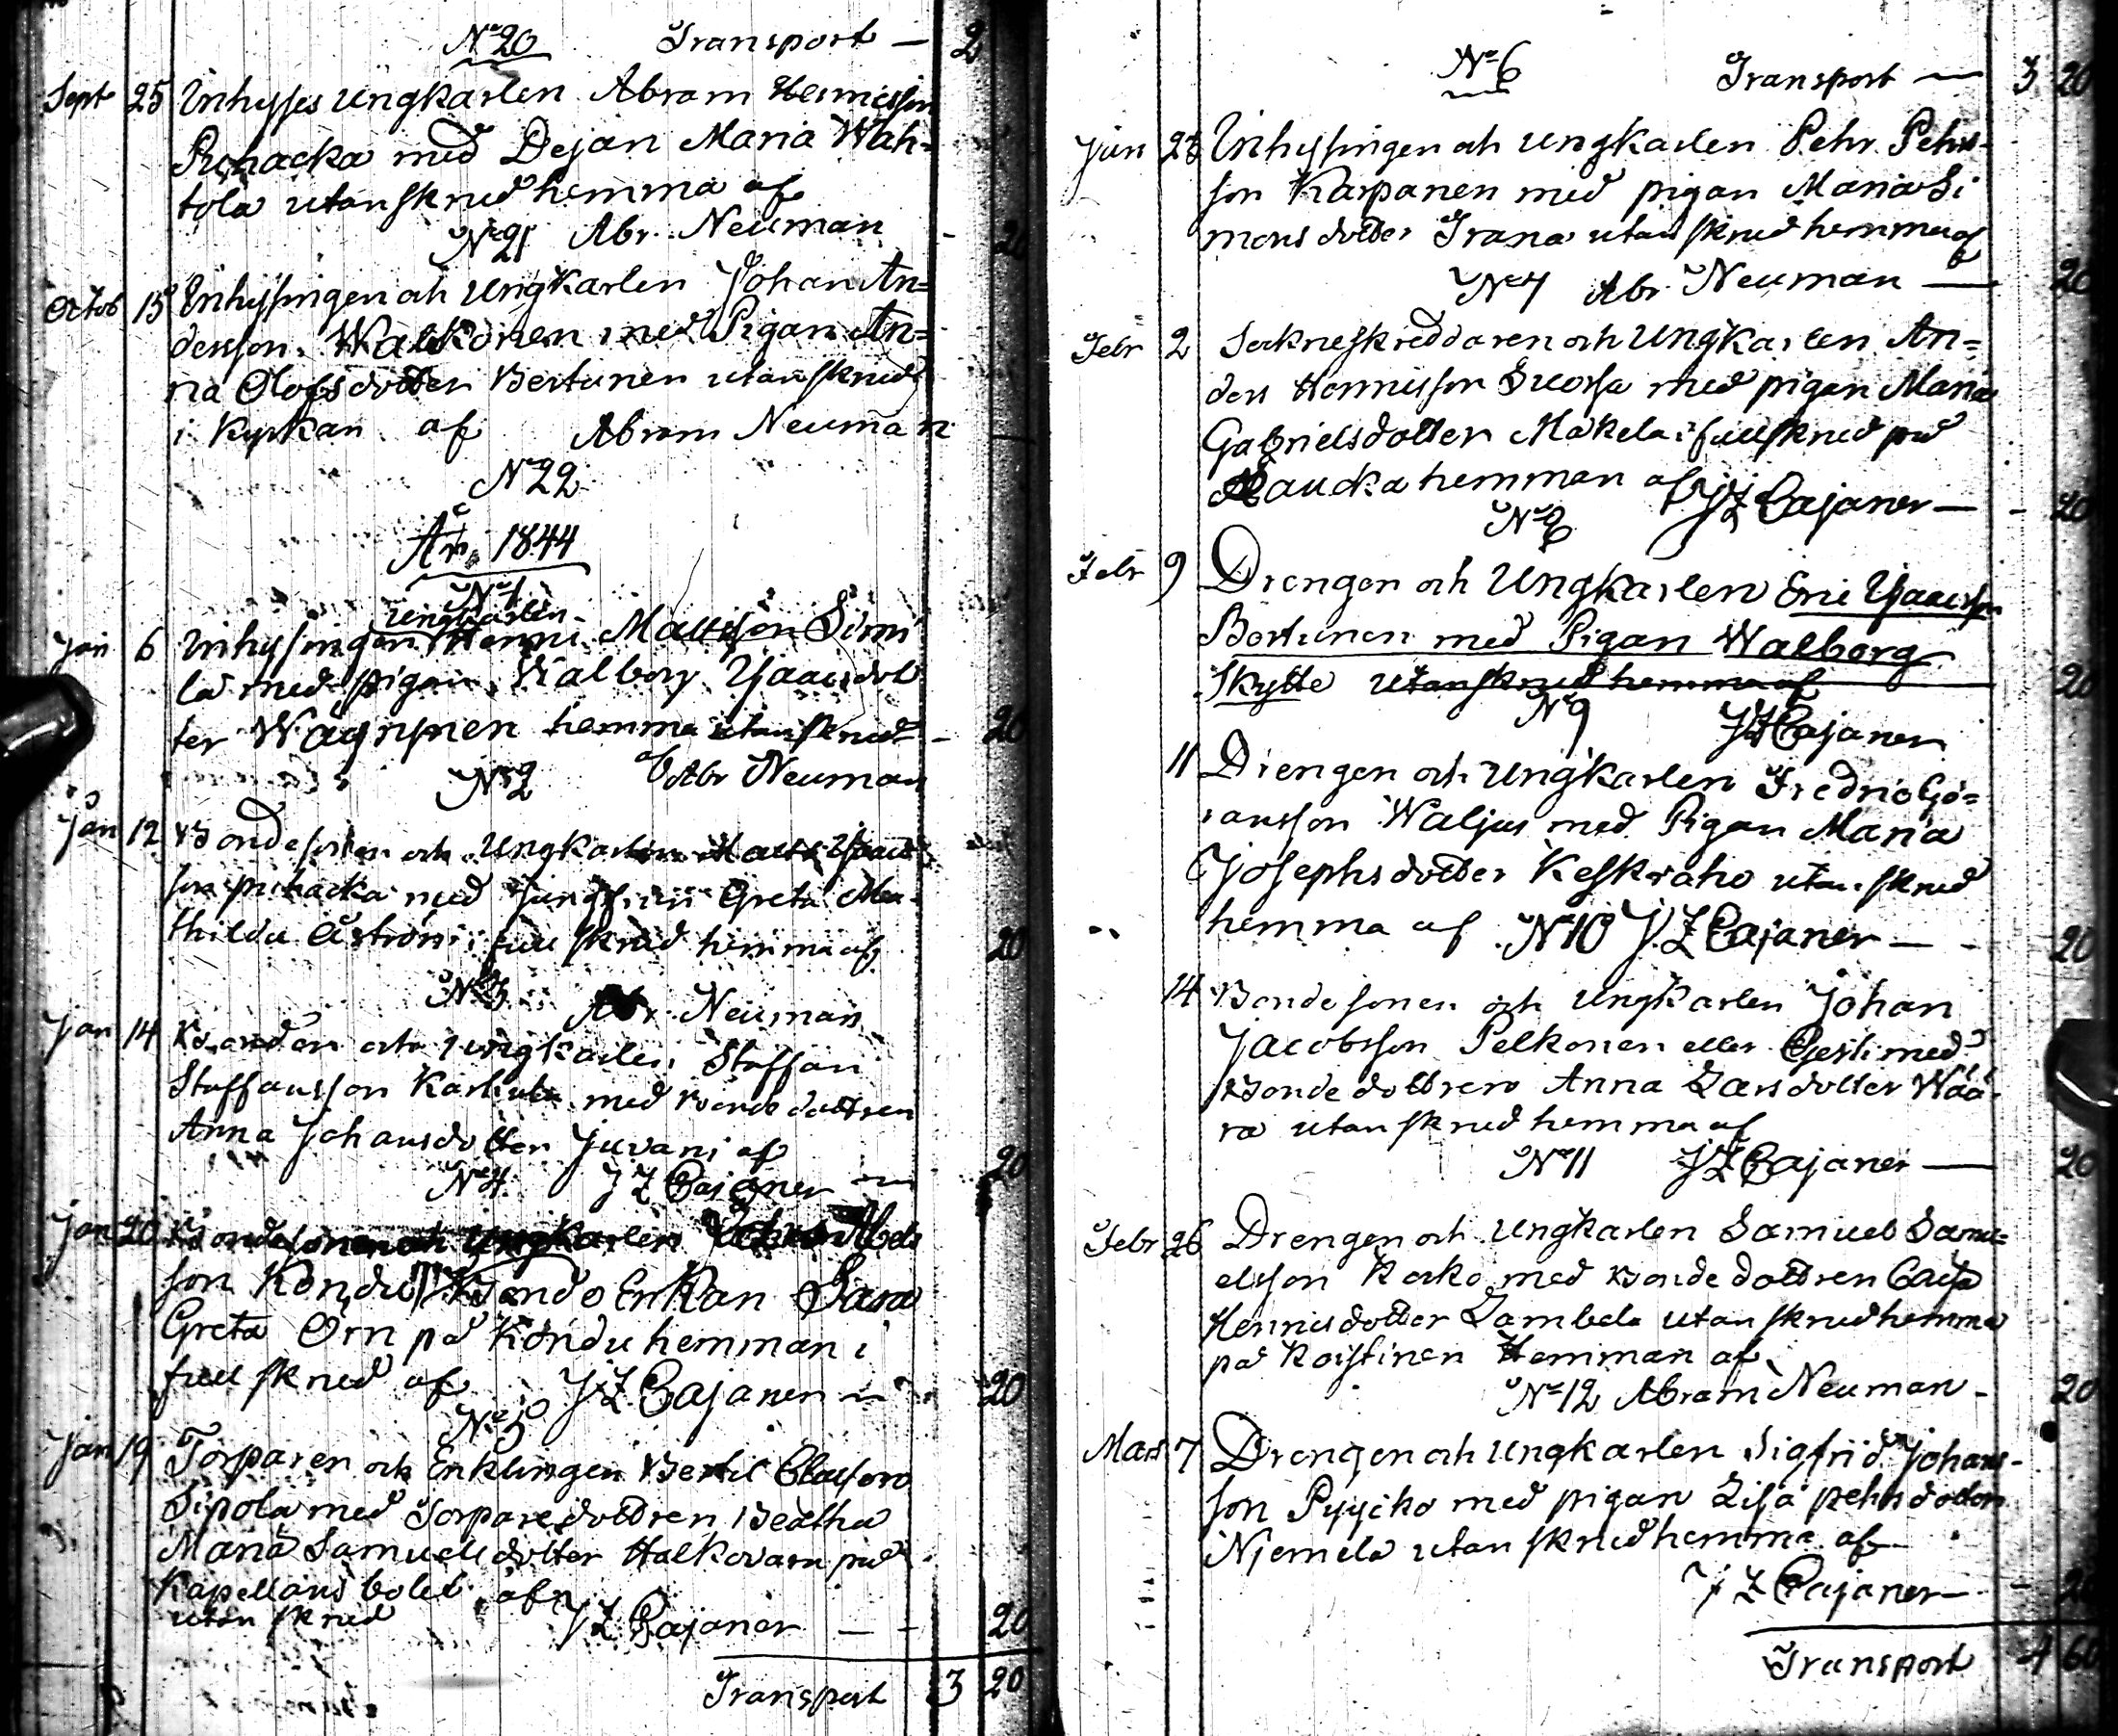 No 20 Transport — 2
Sept 25 Inhysses ungkarlen Abram Hennesson
Puhacka med Dejan Maria Wah=
tola utan skrud hemma af
No 21 Abr. Neuman - 20
Octob 15 Inhysingen och Ungkarlen Johan An=
dersson Walkonen med Pigan An=
na Olofsdotter Bertunen utan skrud
i Kyrkan af Abram Neuman
No 22
År 1844
No 1
Ungkarlen
Jan 6 Inhysingen Henric Mattsson Simi
la med pigan Walborg Isaacsdot
ter Wäyrynen hemma utan skrud - 20
No 2 af Abr Neuman
Jan 12 Bondesonen och Ungkarlen Matts Isaacs
son puhacka med Jungfrun Greta Ma-
thilda Åström i full skrud hemma af 20
No 3 Abr. Neuman
Jan 14 Bonden och ungkarlen Staffan
Staffansson Karhula med Bonde dottren
Anna Johansdotter Juvani af 20
No 4 J Z Cajaner —
Jan 20 Bondesonen och Ungkarlen Abels
son Kondu Bonde Enkan Sara
Greta Orn på Kondu hemman i
full skrud af J Z Cajaner — 20
No 5
Jan 19 Torparen och Enklingen Bertil Claesson
Sipola med Torparedottren Beatha
Maria Samuels dotter Halkovara på
Kapellans bolet af
utan skrud J Z Cajaner — - 20
Transport 3 20
No 6 Transport — 3 20
Jan 23 Inhysingen och ungkarlen Pehr Pehrs-
son Karpanen med pigan Maria Si
mons dotter Trana utan skrud hemma af
No 7 Abr. Neuman — 20
Febr 2 Sockneskreddaren och Ungkarlen An=
ders Hennesson Suorsa med pigan Maria
Gabrielsdotter Makela i full skrud på
Raucka hemman af J Z Cajaner — - 20
No 8
Febr 9 Drengen och Ungkarlen Eric Isaacsson
Bertunen med Pigan Walborg
Skytte utan skrud hemma af 20
No 9 J Z Cajaner
11 Drengen och Ungkarlen Fredric Gö=
ransson Waljus med Pigan Maria
Josephsdotter Keskiaho utan skrud
hemma af No 10 J Z Cajaner — - 20
14 Bondesonen och Ungkarlen Johan
Jacobsson Pelkonen eller Gesti med
Bonde dottren Anna Larsdotter Waa-
ra utan skrud hemma af
No 11 J Z Cajaner — 20
Febr 26 Drengen och Ungkarlen Samuel Samu=
elsson Korko med Bonde dottren Caisa
Hennesdotter Lambela utan skrud hemma
på Koistinen Hemman af
No 12 Abram Neuman - 20
Mars 7 Drengen och Ungkarlen Sigfrid Johans-
son Pyyciko med pigan Lisa pehrsdotter
Niemela utan skrud hemma af
J Z Cajaner — - 20
Transport 4 60